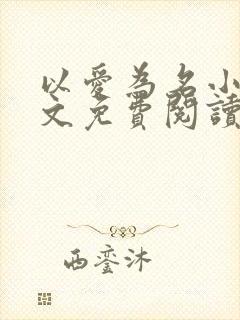 以愛為名小
文免費閱讀
西銮沐